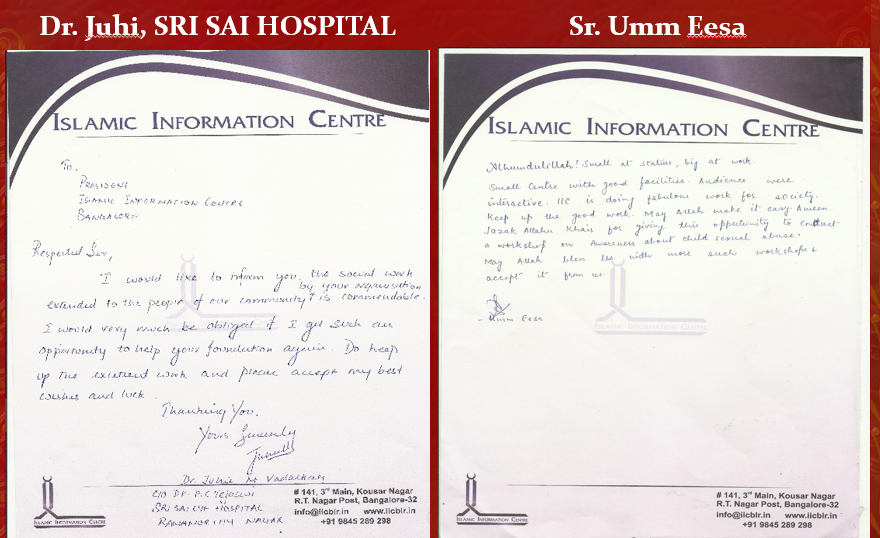 Dr. Juhi, SRI SAI HOSPITAL
ISLAMIC INFORMATION CENTRE
To,
PRESIDENT
ISLAMIC INFORMATION CENTRE
BANGALORE
Respected Sir,
I would like to inform you, the social work
by your organisation
extended to the people of our community is commendable.
I would very much be obliged if I get such an
opportunity to help your foundation again. Do keep
up the excellent work and please accept my best
wishes and luck.
Thanking You.
Yours Sincerely
Dr. Juhi M
C/O Dr. P.C
SRI SAI HOSPITAL
NAGAR
ISLAMIC INFORMATION CENTRE
# 141, 3rd Main, Kousar Nagar
R.T. Nagar Post, Bangalore-32
info@iicblr.in www.iicblr.in
+91 9845 289 298
Sr. Umm Eesa
ISLAMIC INFORMATION CENTRE
Alhumdulillah! Small at stature, big at work.
Small Centre with good facilities. Audience were
interactive. IIC is doing fabulous work for society.
Keep up the good work. May Allah make it easy. Ameen.
Jazak Allahu Khair for giving this oppurtunity to conduct
a workshop on Awareness about child sexual abuse.
May Allah bless us with more such workshops
accept it from us.
- Umm Eesa
ISLAMIC INFORMATION CENTRE
ISLAMIC INFORMATION CENTRE
# 141, 3rd Main, Kousar Nagar
R.T. Nagar Post, Bangalore-32
info@iicblr.in www.iicblr.in
+91 9845 289 298